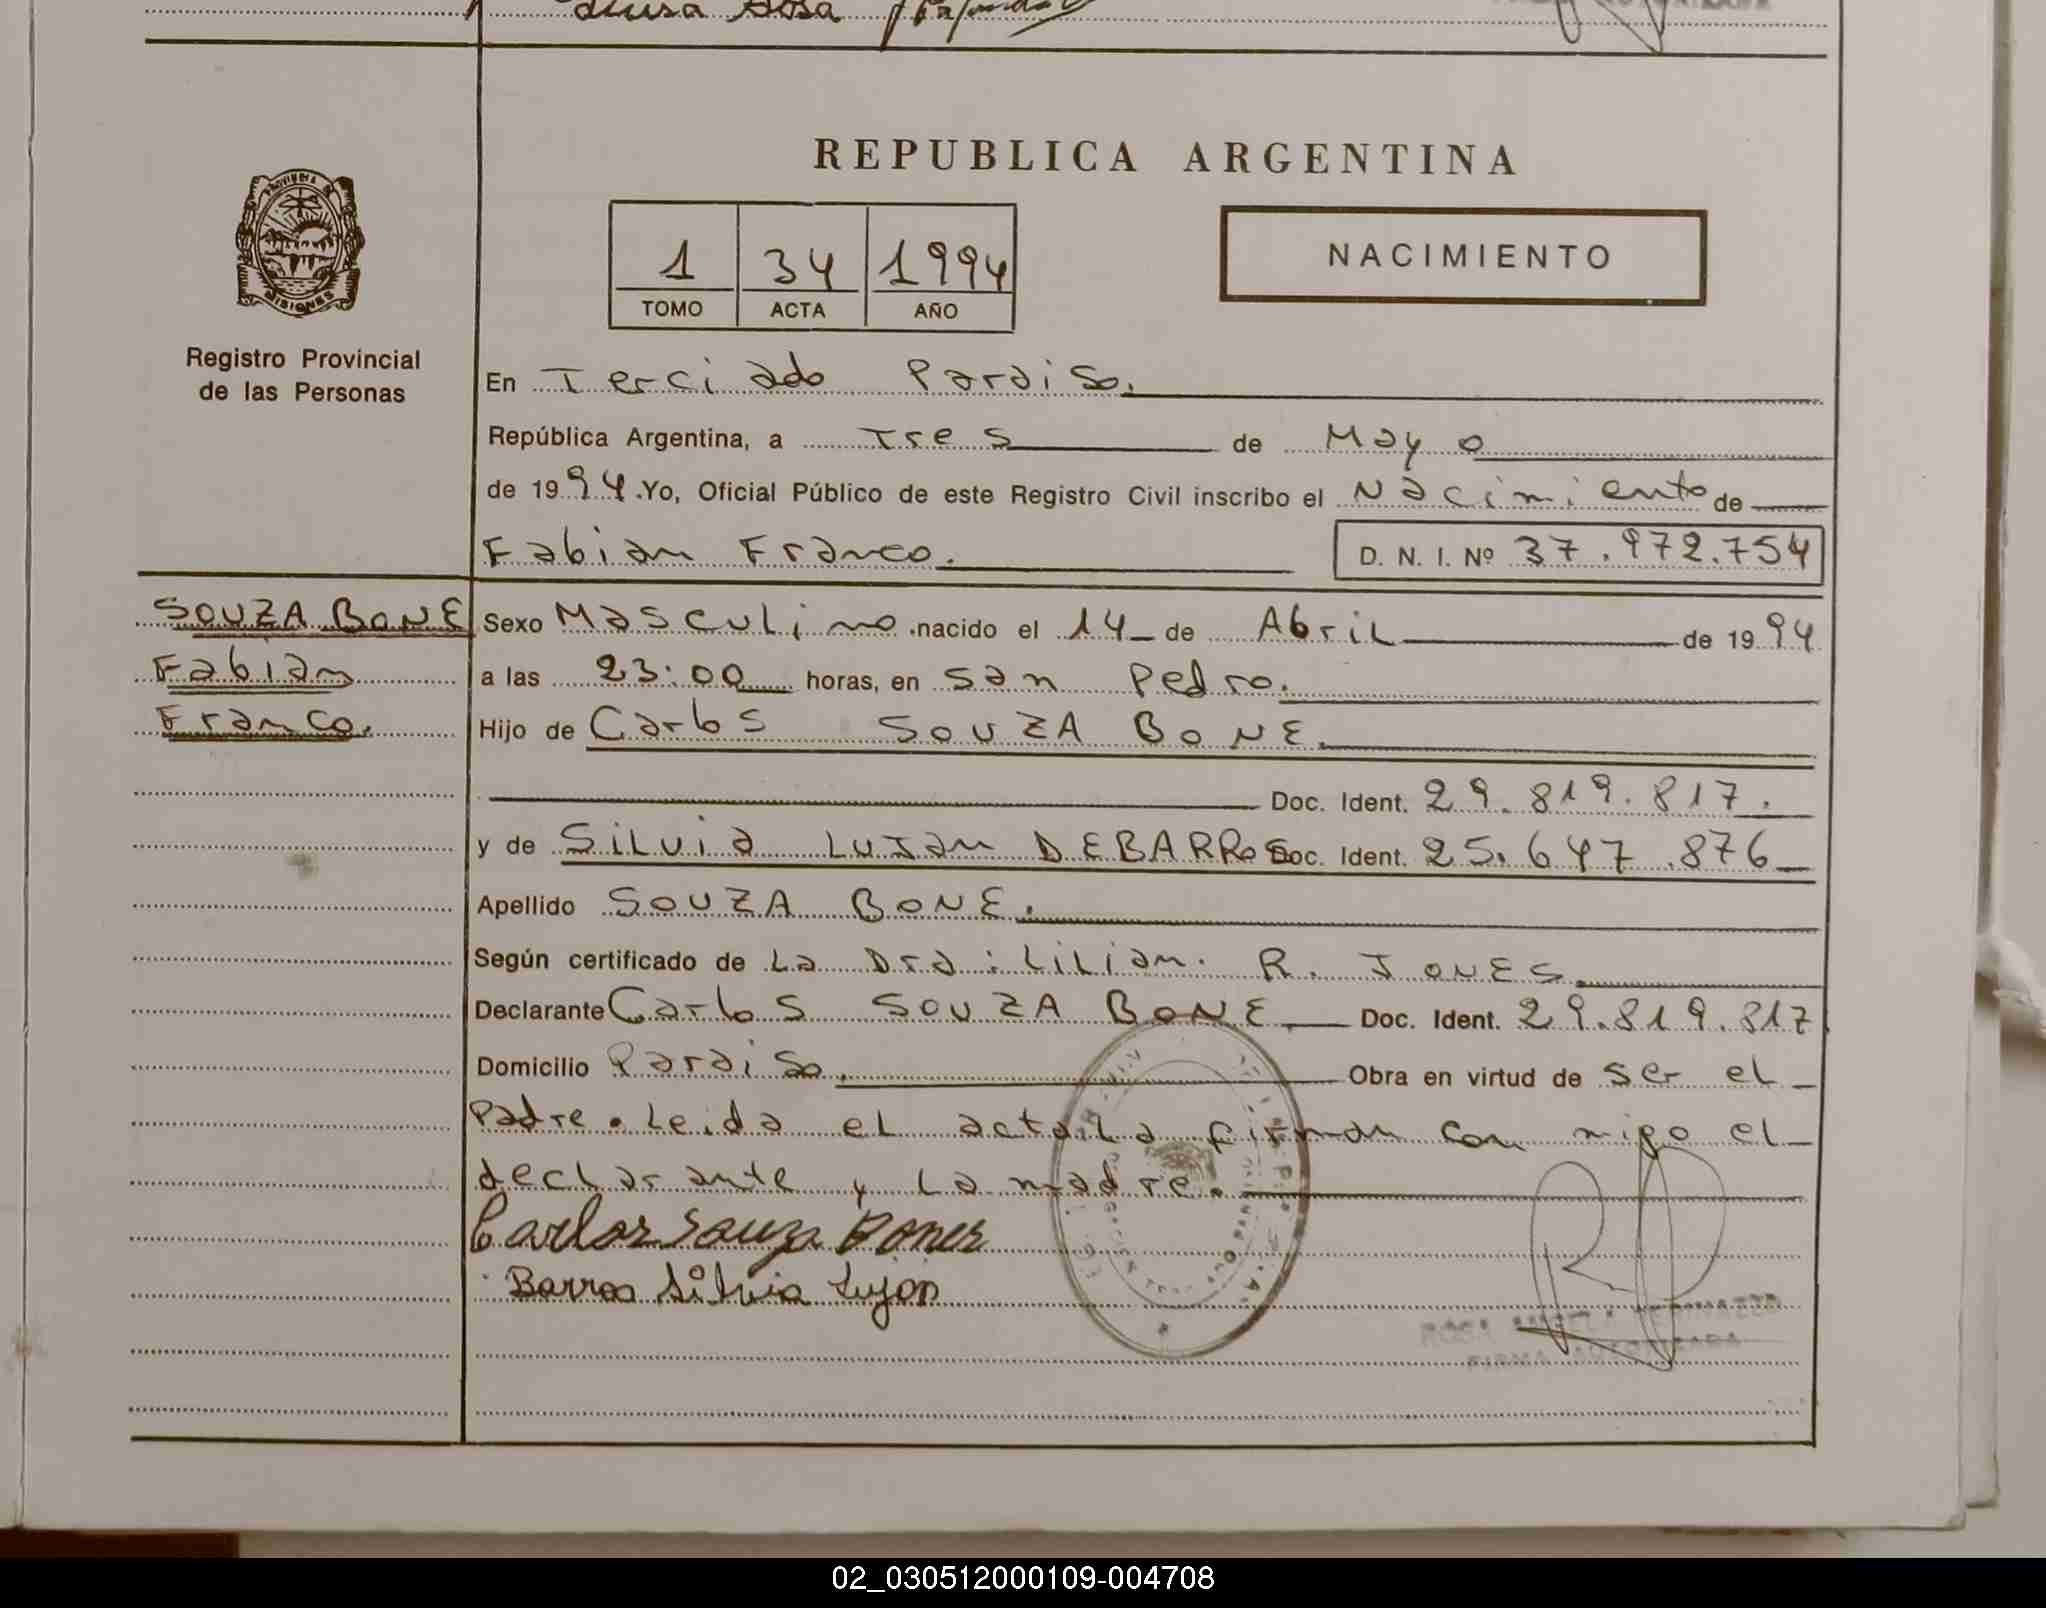 Luisa Sosa
REPUBLICA ARGENTINA
PROVINCIA DE
MISIONES
1 34 1994
TOMO ACTA AÑO
NACIMIENTO
Registro Provincial
de las Personas
En Terciado Paraiso.
República Argentina, a Tres de Mayo
de 1994. Yo, Oficial Público de este Registro Civil inscribo el Nacimiento de
Fabian Franco. D. N. I. Nº 37.972.754
SOUZA BONE
Fabian
Franco.
Sexo Masculino nacido el 14 de Abril de 1994
a las 23:00 horas, en San Pedro.
Hijo de Carlos SOUZA BONE.
Doc. Ident. 29.819.817.
y de Silvia Lujan DEBARROS Doc. Ident. 25.647.876
Apellido SOUZA BONE.
Según certificado de La Dra: Lilian. R. JONES.
Declarante Carlos SOUZA BONE. Doc. Ident. 29.819.817
Domicilio Paraiso. Obra en virtud de ser el
Padre. Leida el acta, la firman con migo el
declarante y la madre.
Carlos Souza Bones
Barros Silvia Lujan
ROSA ANGELA
FIRMA AUTORIZADA
02_030512000109-004708